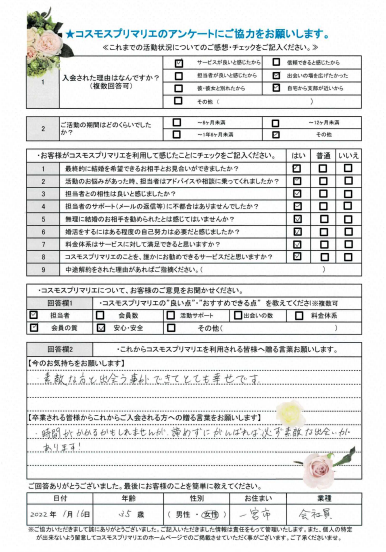 ★コスモスプリマリエのアンケートにご協力をお願いします。
≪これまでの活動状況についてのご感想・チェックをご記入ください。≫
1 入会された理由はなんですか？（複数回答可）
☑ サービスが良いと感じたから ☐ 信頼できると感じたから
☐ 担当者が良いと感じたから ☑ 出会いの場を広げたかった
☐ 彼・彼女と別れたから ☑ 自宅から支部が近いから
☐ その他（ ）
2 ご活動の期間はどのくらいでしたか？
☐ ～6ヶ月未満 ☐ ～12ヶ月未満
☐ ～1年6ヶ月未満 ☑ その他
・お客様がコスモスプリマリエを利用して感じたことにチェックをご記入ください。 はい 普通 いいえ
1 最終的に結婚を希望できるお相手とお見合いができましたか？ ☑ ☐ ☐
2 活動のお悩みがあった時、担当者はアドバイスや相談に乗ってくれましたか？ ☑ ☐ ☐
3 担当者との相性は良いと感じましたか？ ☑ ☐ ☐
4 担当者のサポート(メールの返信等)に不都合はありませんでしたか？ ☑ ☐ ☐
5 無理に結婚のお相手を勧められたとは感じてはいませんか？ ☑ ☐ ☐
6 婚活をするにはある程度の自己努力は必要だと感じましたか？ ☑ ☐ ☐
7 料金体系はサービスに対して満足できると思いますか？ ☑ ☐ ☐
8 コスモスプリマリエのことを、誰かにお勧めできるサービスだと思いますか？ ☑ ☐ ☐
9 中途解約をされた理由があればご指摘ください。（ ）
・コスモスプリマリエについて、お客様のご意見をお聞かせください。
回答欄1 ・コスモスプリマリエの“良い点”・“おすすめできる点” を教えてください※複数可
☑ 担当者 ☐ 会員数 ☐ 活動サポート ☐ 出会いの数 ☐ 料金体系
☑ 会員の質 ☑ 安心・安全 ☐ その他（ ）
回答欄2 ・これからコスモスプリマリエを利用される皆様へ贈る言葉お願いします。
【今のお気持ちをお願いします】
素敵な方と出会う事ができてとても幸せです
【卒業される皆様からこれからご入会される方への贈る言葉をお願いします】
・時間がかかるかもしれませんが、諦めずにがんばれば必ず素敵な出会いが
あります！
ご回答ありがとうございました。最後にお客様のことを簡単に教えてください。
日付 年齢 性別 お住まい 業種
2022年 1月16日 35歳 （男性・女性） 一宮市 会社員
※ご協力いただきまして誠にありがとうございました。ご記入いただきました情報は責任をもって管理いたします。また、個人の特定
が出来ないよう留意してコスモスプリマリエのホームページでご掲載させていただく事がございます。ご了承くださいませ。